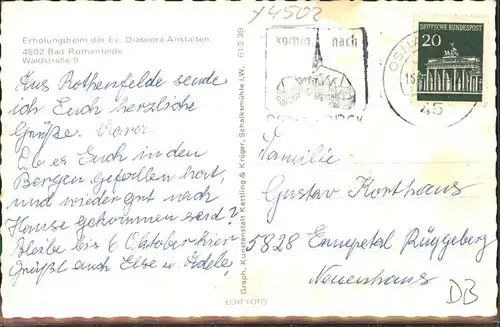 y4502
Erholungsheim der Ev. Diaspora Anstalten
4502 Bad Rothenfelde
Waldstraße 9
komm nach
OSNABRÜCK
DEUTSCHE BUNDESPOST
20
45
Aus Rothenfelde sende
ich Euch herzliche
Grüße.
Ob es Euch in den
Bergen gefallen hat,
und wieder gut nach
Hause gekommen seid?
Bleibe bis 6 Oktober hier
Grüßt auch Else u. Adele,
Graph. Kunstanstalt Kettling & Krüger, Schalksmühle i.W. 613 39
Familie
Gustav Korthaus
5828 Ennepetal Rüggeberg
Neuenhaus
DB
ECHT FOTO